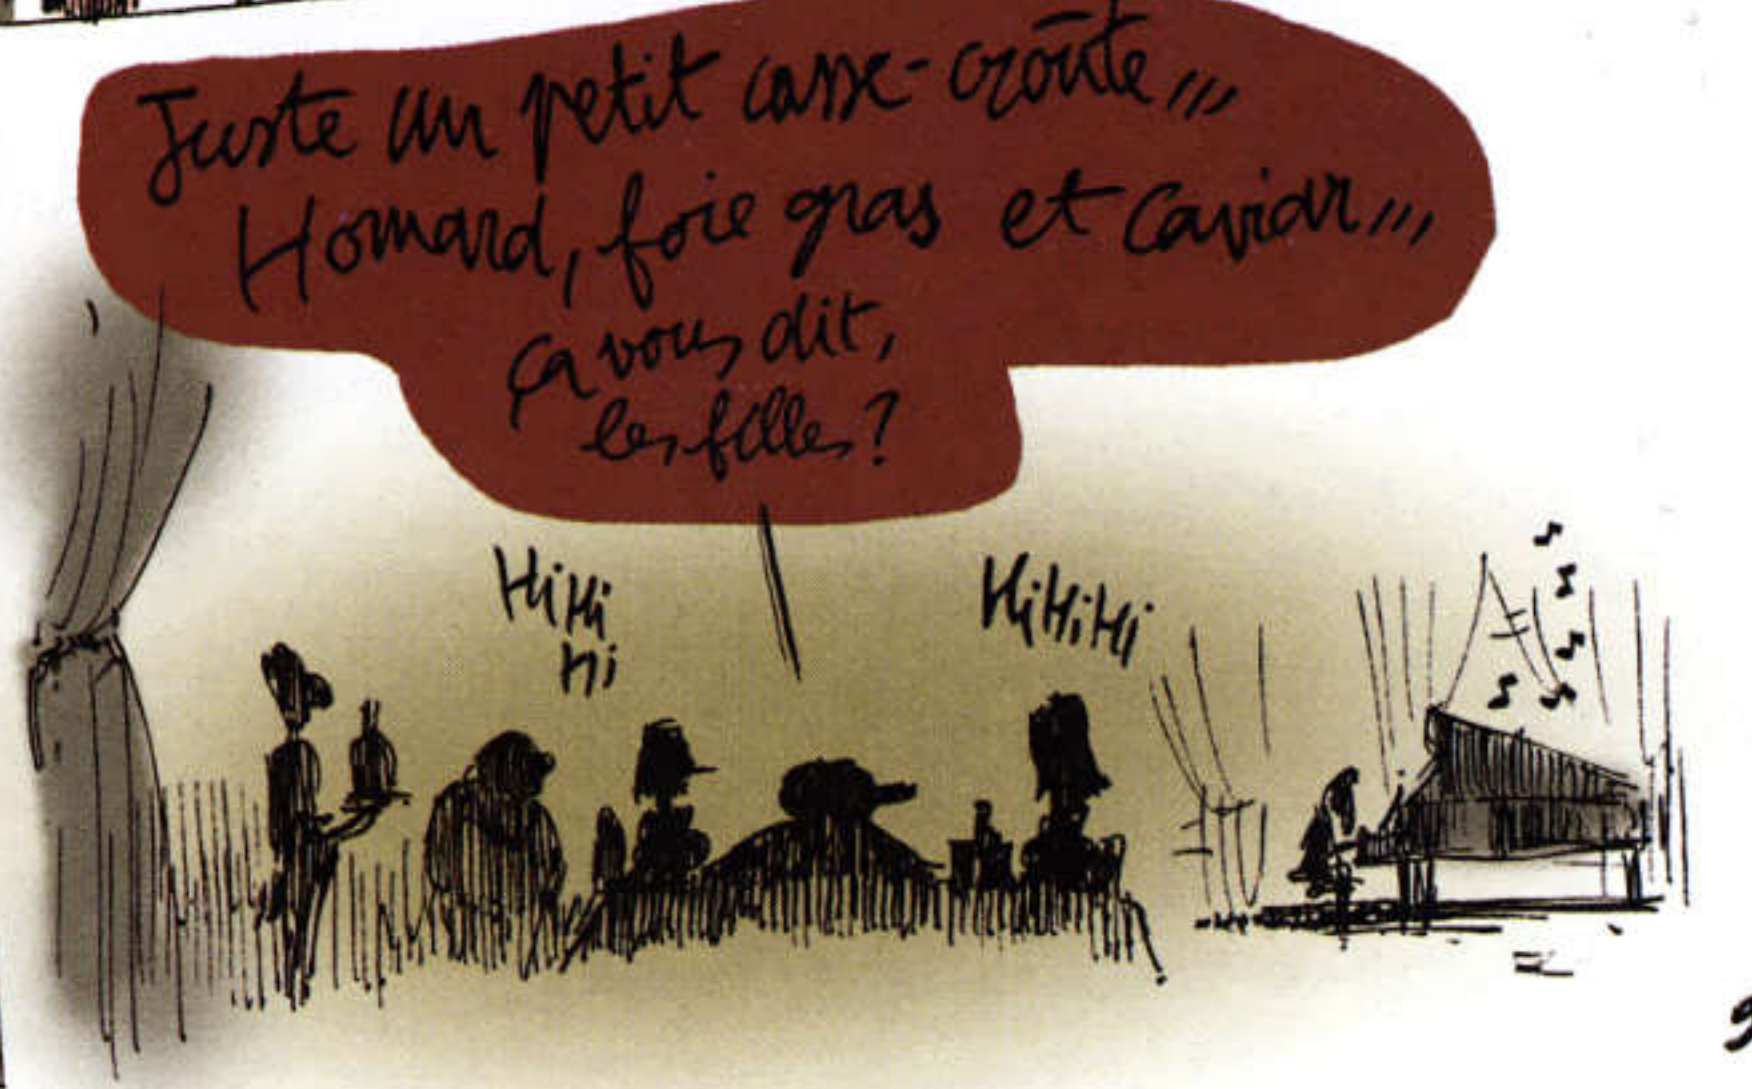 Juste un petit casse-croûte,,,
Homard, foie gras et caviar,,,
ça vous dit,
les filles?
HiHi
Hi
HiHiHi